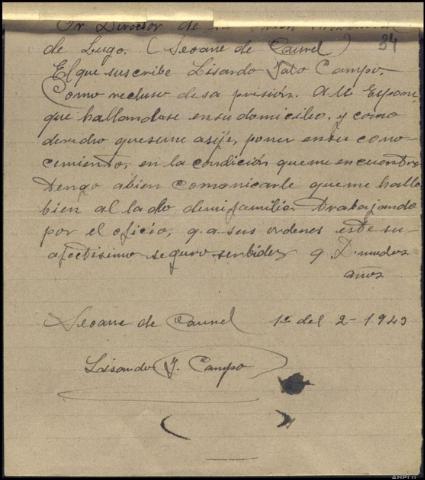 Sr Director de la
de Lugo. (Seoane de Caurel) 34
El que suscribe Lisardo Jato Campo.
Como recluso de sa prisión. A U.
que hallandose en su domicilio, y como
deredro que se me asije, poner en su cono-
cimiento, en la condición que me encuentro
Tengo abien comunicarle que me hallo
bien al lado demi familia. Trabajando
por el oficio, y a sus ordenes este su
afectisimo seguro serbidor q. D mudos
anos
Seoane de Caurel 1º del 2-1943
Lisardo J. Campo